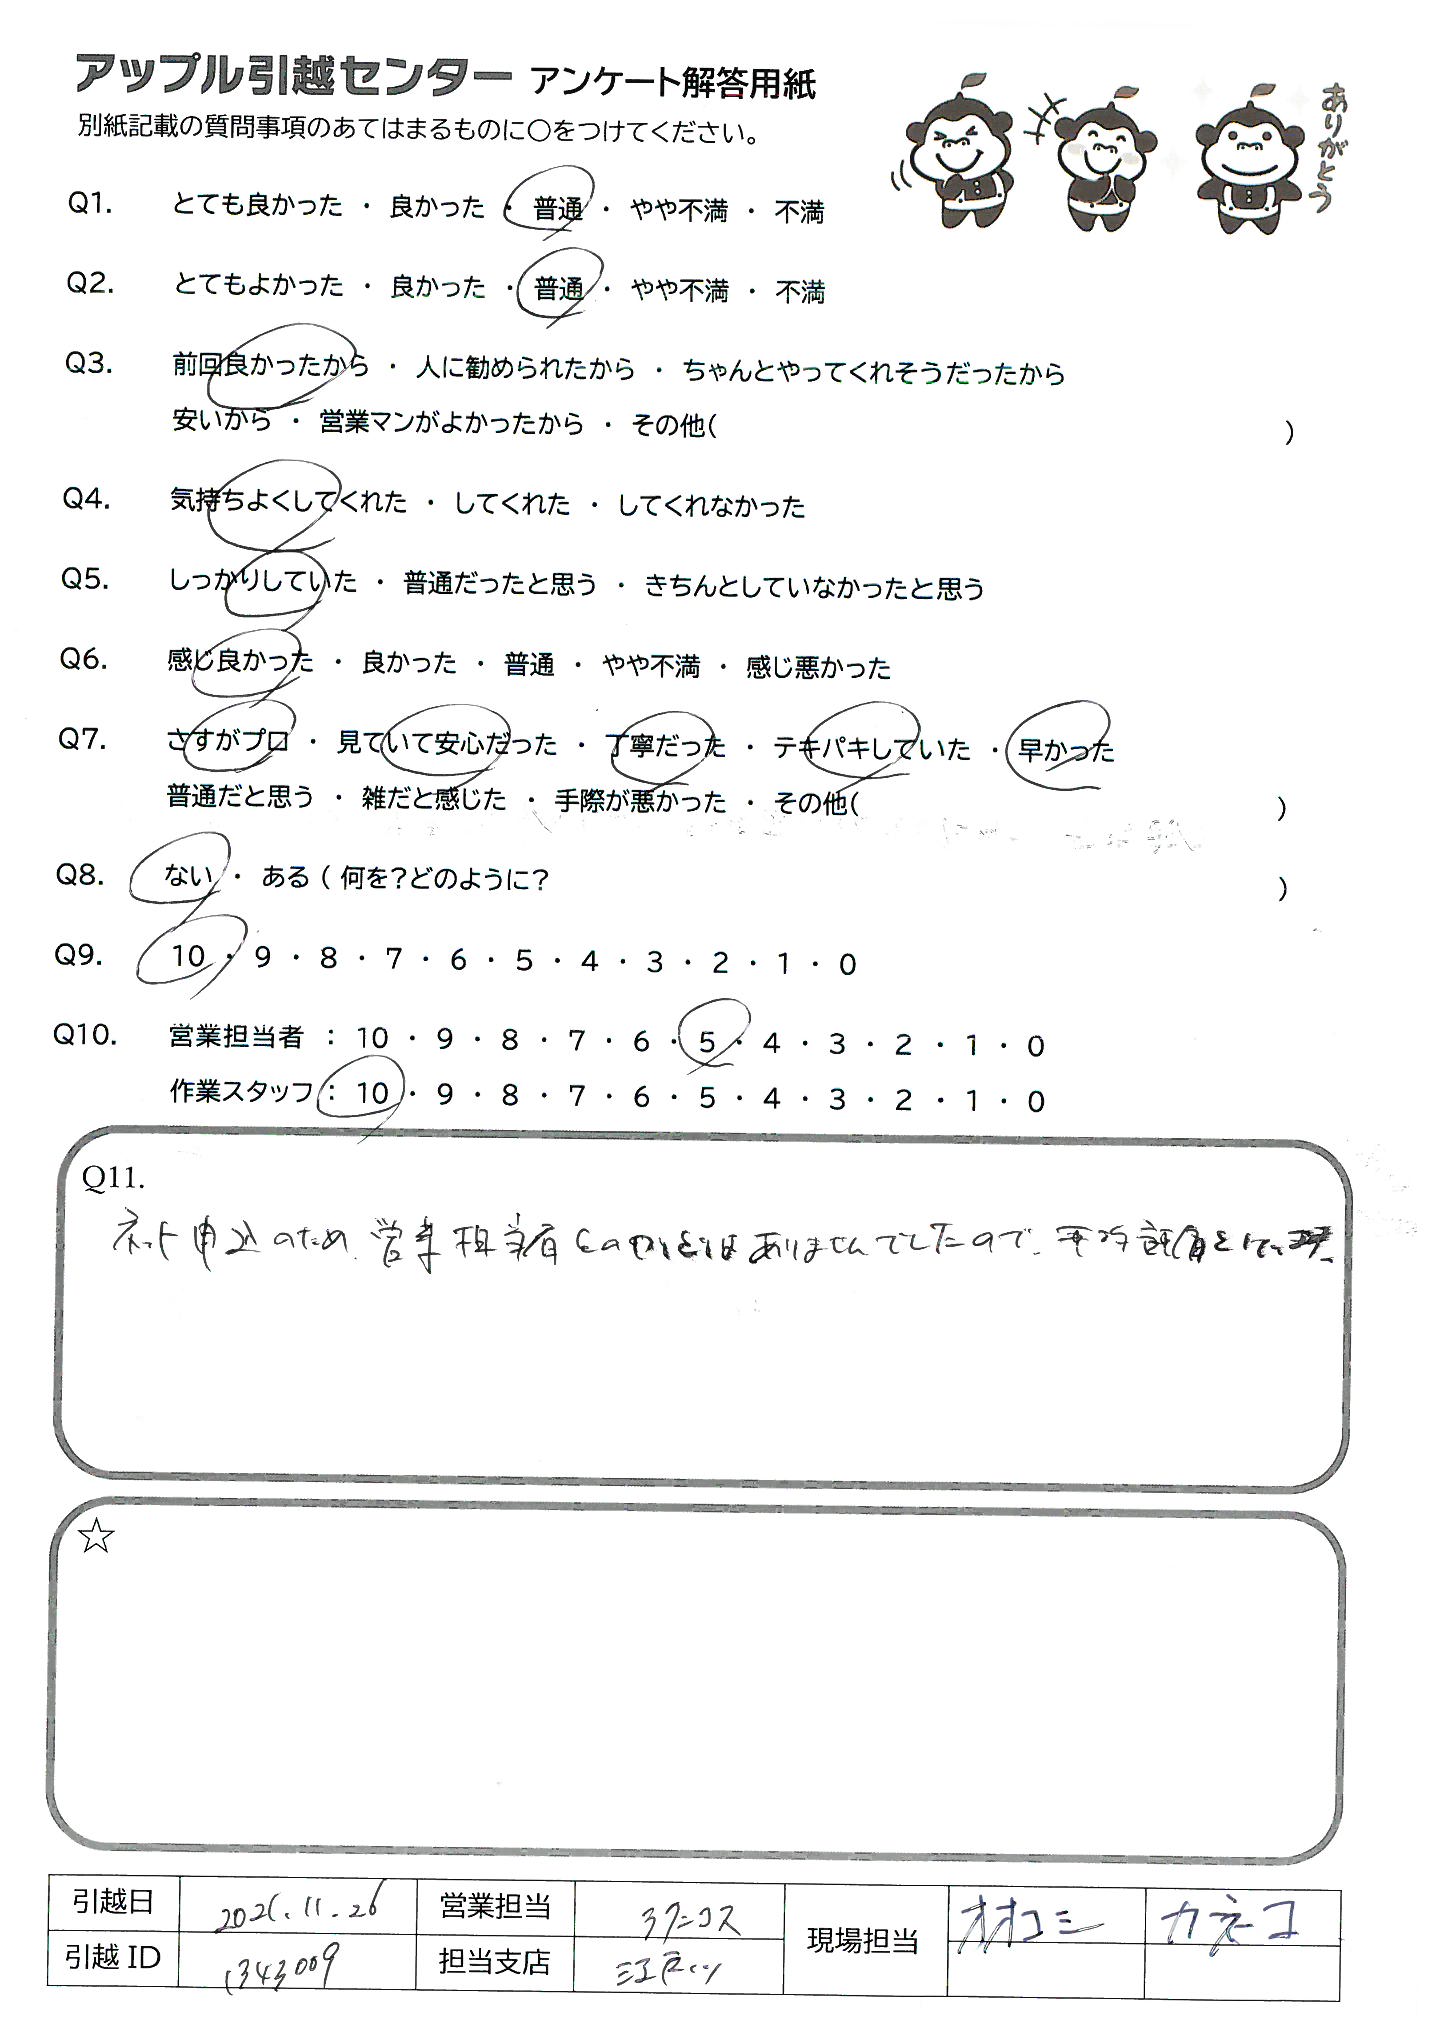 アップル引越センター アンケート解答用紙
別紙記載の質問事項のあてはまるものに○をつけてください。
ありがとう
Q1. とても良かった ・ 良かった ・ 普通 ・ やや不満 ・ 不満
Q2. とてもよかった ・ 良かった ・ 普通 ・ やや不満 ・ 不満
Q3. 前回良かったから ・ 人に勧められたから ・ ちゃんとやってくれそうだったから
安いから ・ 営業マンがよかったから ・ その他( )
Q4. 気持ちよくしてくれた ・ してくれた ・ してくれなかった
Q5. しっかりしていた ・ 普通だったと思う ・ きちんとしていなかったと思う
Q6. 感じ良かった ・ 良かった ・ 普通 ・ やや不満 ・ 感じ悪かった
Q7. さすがプロ ・ 見ていて安心だった ・ 丁寧だった ・ テキパキしていた ・ 早かった
普通だと思う ・ 雑だと感じた ・ 手際が悪かった ・ その他( )
Q8. ない ・ ある ( 何を?どのように? )
Q9. 10 ・ 9 ・ 8 ・ 7 ・ 6 ・ 5 ・ 4 ・ 3 ・ 2 ・ 1 ・ 0
Q10. 営業担当者 : 10 ・ 9 ・ 8 ・ 7 ・ 6 ・ 5 ・ 4 ・ 3 ・ 2 ・ 1 ・ 0
作業スタッフ : 10 ・ 9 ・ 8 ・ 7 ・ 6 ・ 5 ・ 4 ・ 3 ・ 2 ・ 1 ・ 0
Q11.
ネット申込のため、営業担当者とのやりとりはありませんでしたので、
☆
引越日 2021.11.26 営業担当 現場担当 オオコシ カネコ
引越 ID 1343009 担当支店